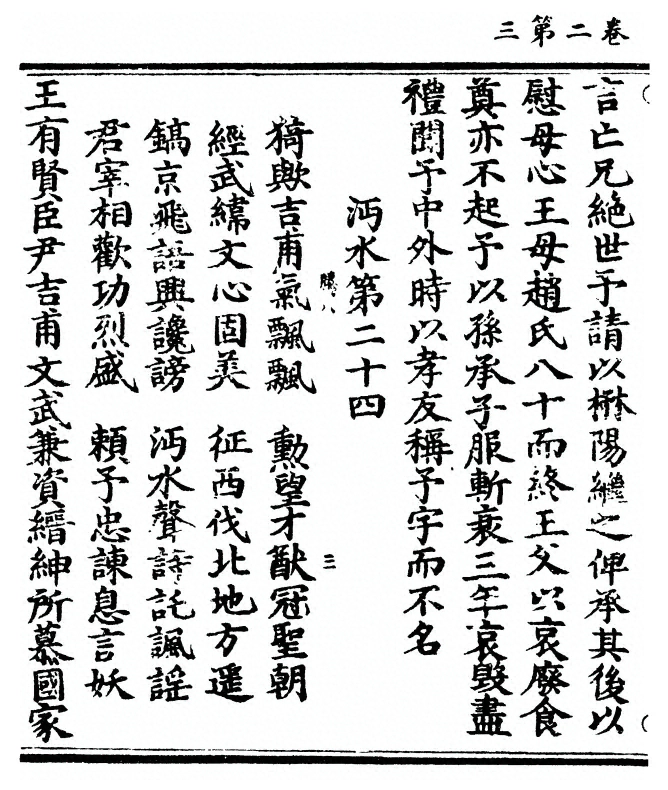 卷二第三
言亡兄絕世予請以陽繼之俾承其後以
慰母心王母趙氏八十而終王父以哀廢食
奠亦不起予以孫承子服斬衰三年哀毀盡
禮聞予中外時以孝友稱予字而不名
沔水第二十四
八 三
猗歟吉甫氣飄飄 勳望才猷冠聖朝
經武緯文心固美 征西伐北地方遥
鎬京飛語興讒謗 沔水聲詩託諷謡
君宰相歡功烈盛 頼予忠諫息言妖
王有賢臣尹吉甫文武兼資縉紳所慕國家